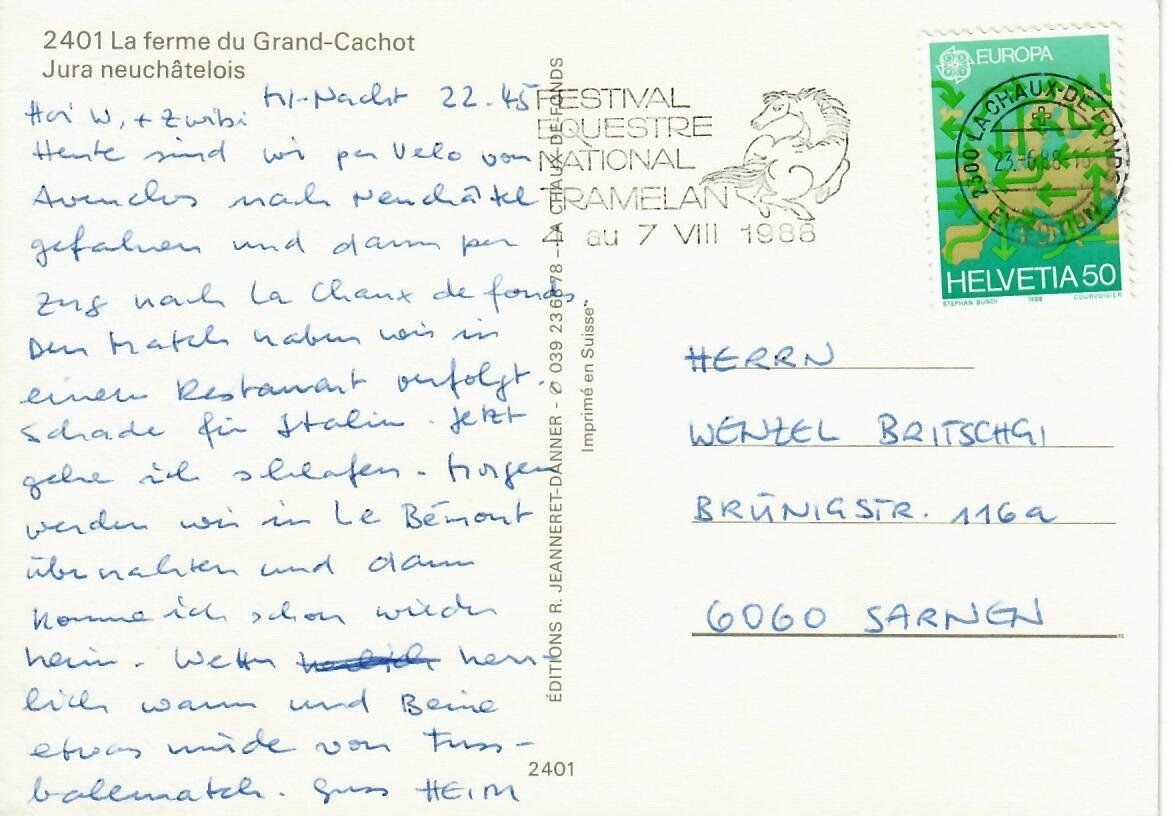 2401 La ferme du Grand-Cachot
Jura neuchâtelois
Mi-Nacht 22.45
Hoi W, + Zwibi
Heute sind wir per Velo von
Avenches nach Neuchâtel
gefahren und dann per
Zug nach La Chaux de fonds.
Den Match haben wir in
einem Restaurant verfolgt.
Schade für Italien. Jetzt
gehe ich schlafen. Morgen
werden wir in Le Bémont
übernachten und dann
komme ich schon wieder
heim. Wetter herr-
lich warm und Beine
etwas müde von Fuss-
ballmatch. Gruss HEIM
ÉDITIONS R. JEANNERET-DANNER - ✆ 039 236878 - LA CHAUX-DE-FONDS
Imprimé en Suisse
2401
FESTIVAL
EQUESTRE
NATIONAL
TRAMELAN
4 au 7 VIII 1988
EUROPA
2300 LA CHAUX-DE-FONDS
23.-6.88
EXPEDITION
HELVETIA 50
STEPHAN BUNDI 1988 COURVOISIER
HERRN
WENZEL BRITSCHGI
BRÜNIGSTR. 116a
6060 SARNEN